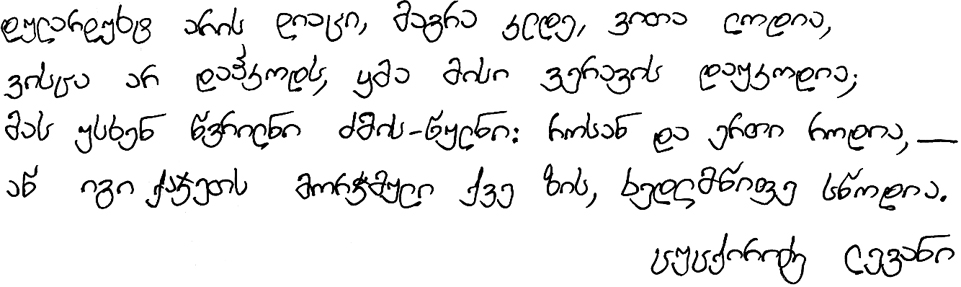 დულარდუხტ არის დიაცი, მაგრა კლდე, ვითა ლოდია,
ვისცა არ დაჰკოდს, ყმა მისი ვერავის დაუკოდია;
მას უსხენ წვრილნი ძმის-წულნი: როსან და ერთი როდია, —
აწ იგი ქაჯეთს მორჭმული ქვე ზის, ხელმწიფე სწოდია.
სუსქირიძე ლევანი